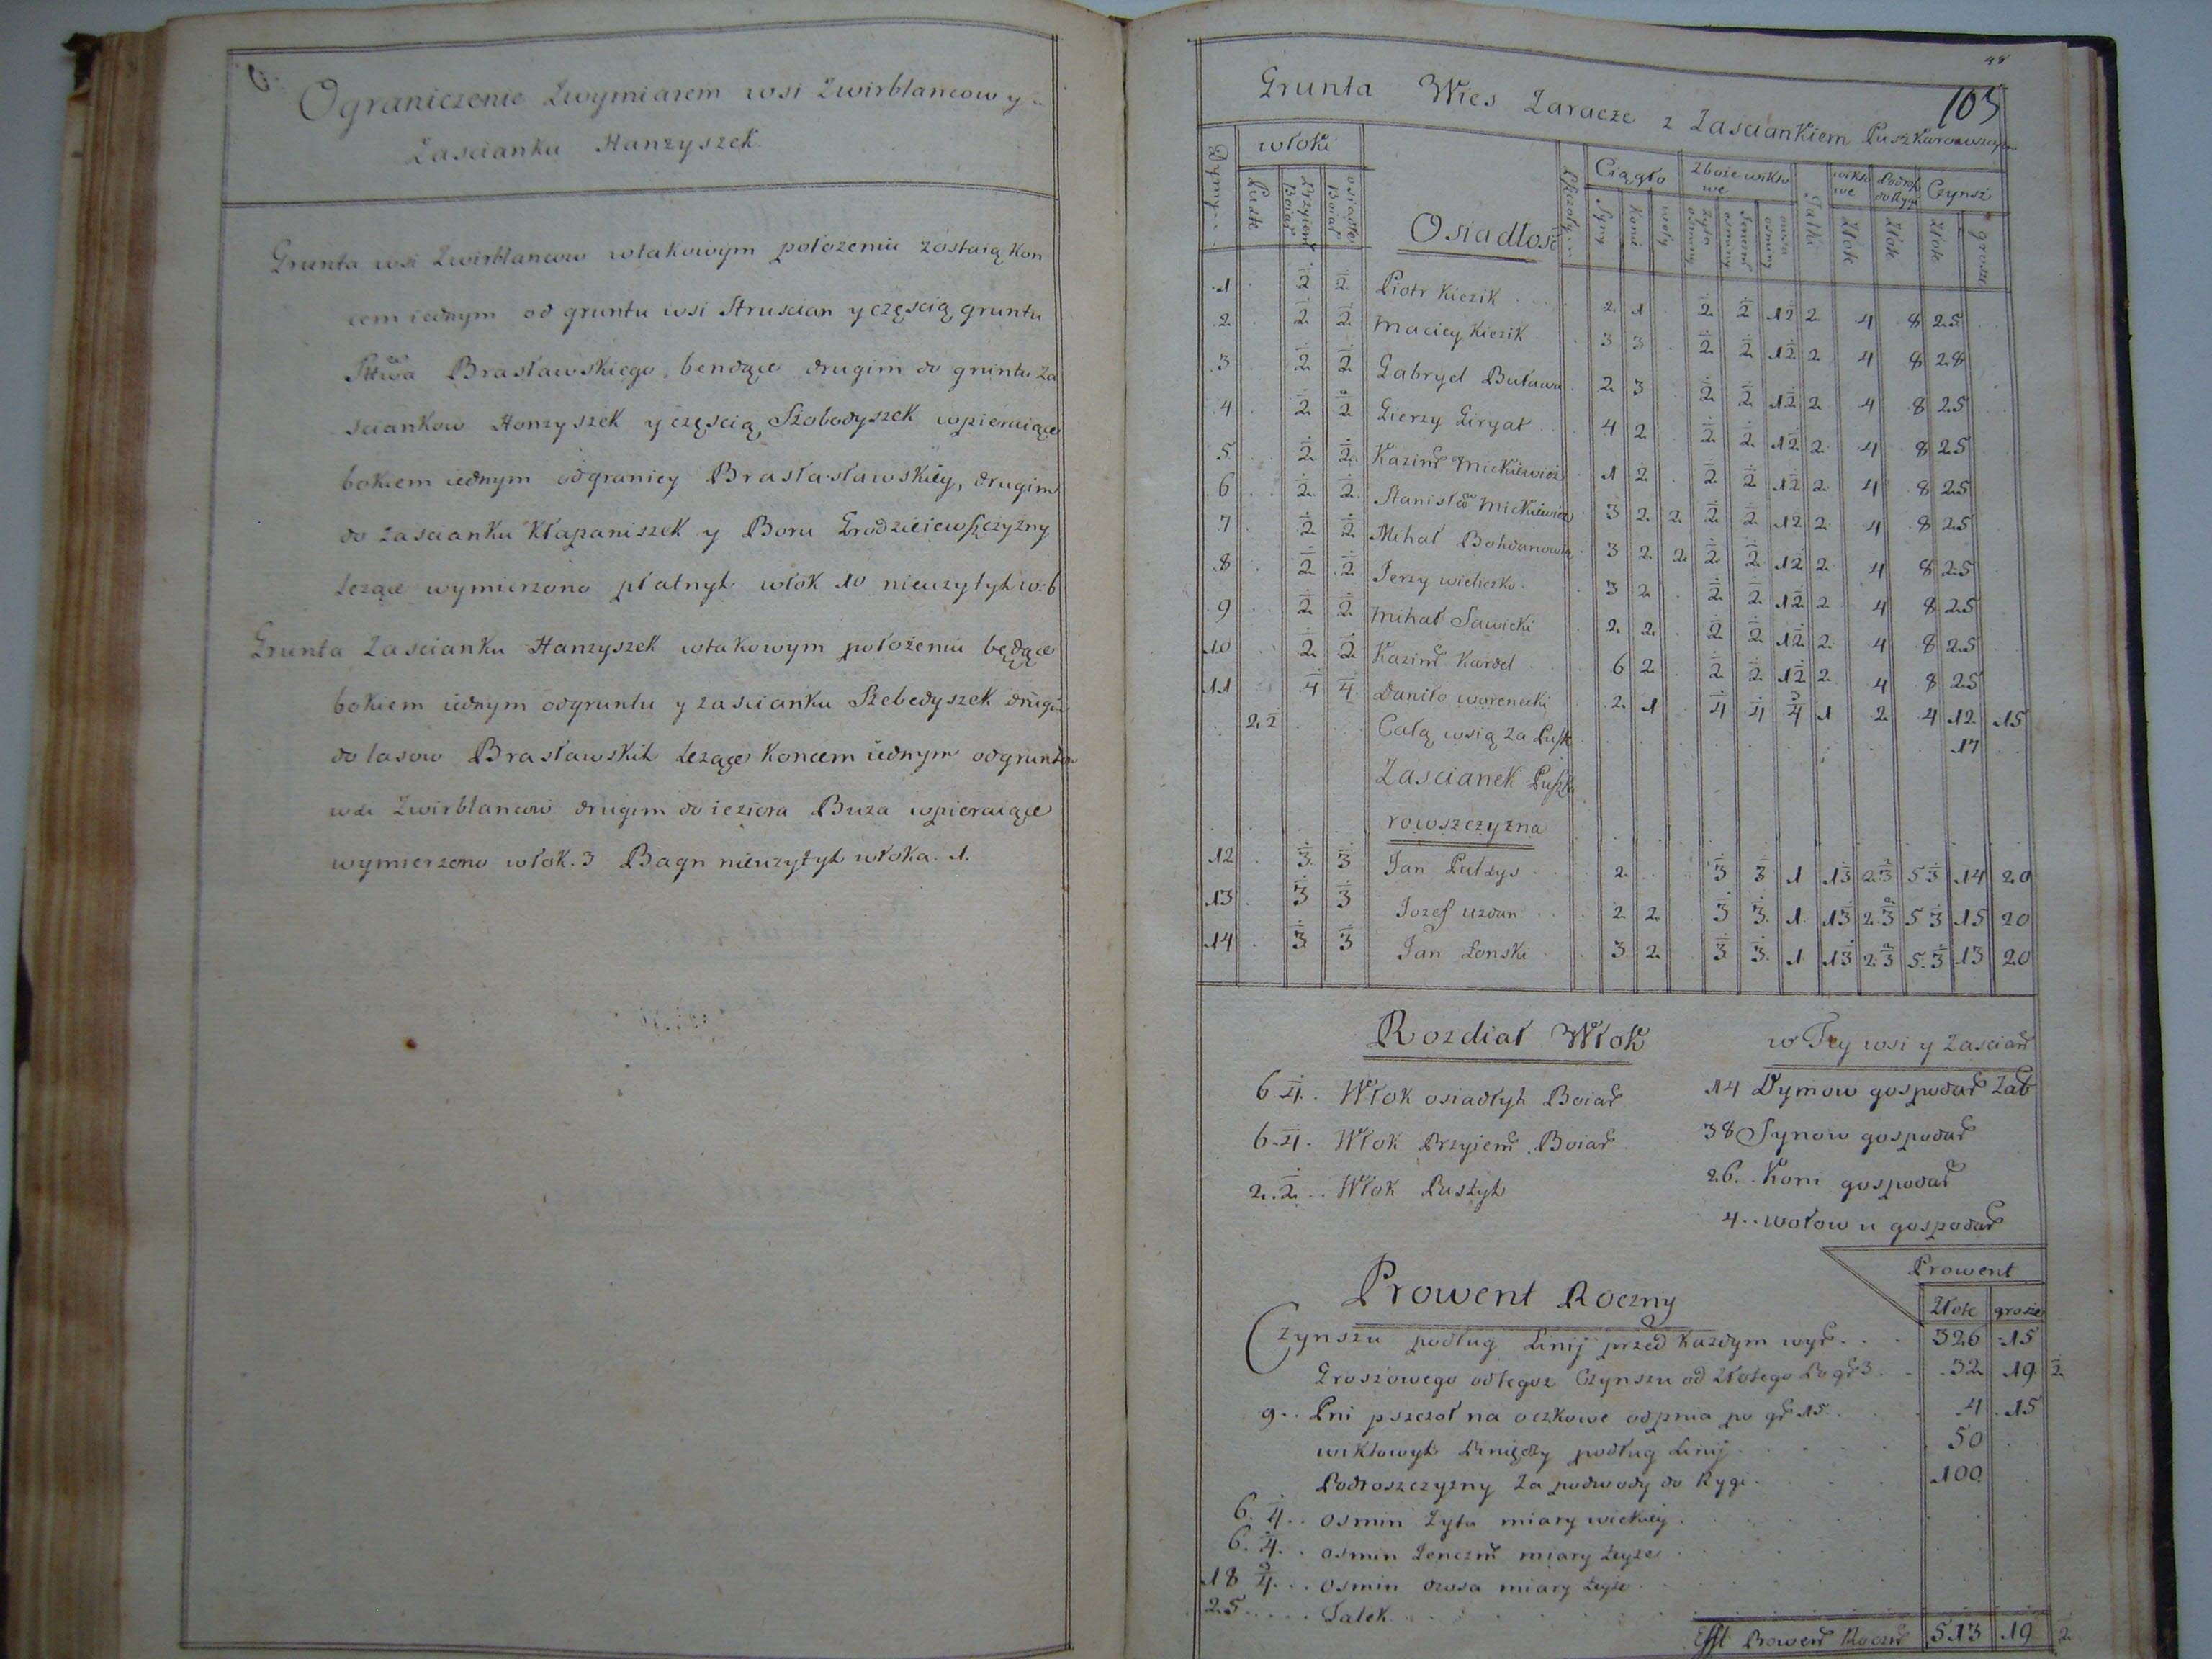 Ograniczenie Zwymiarem wsi Zwirblancow y
Zascianku Hanzyszek.
Grunta wsi Zwirblancow wtakowym położeniu zostaią kon
cem iednym od gruntu wsi Struscian y częscią gruntu
Pttwa Brasławskiego, bendące drugim do gruntu Za
sciankow Honzyszek y częscią Szobodyszek wpieraiące
bokiem iednym odgranicy Brasłasławskiey, drugim
do zascianku Kłapaniszek y Boru Grodzieiewszczyzny
Leżące wymierzono płatnyh włok 10 nieuzytyh w: 6
Grunta Zascianku Hanzyszek wtakowym położeniu będące
bokiem iednym odgruntu y zascianku Szebedyszek drugim
do lasow Brasławskih Leżące koncem iednym odgruntow
wsi Zwirblancow drugim do ieziora Buza wpieraiące
wymierzono włok. 3 Bagn nieuzytyh włoka. 1.
48
103
Grunta Wies Zaracze z Zasciankiem Puszkarowszczyzna
Dymy włoki Osiadłosć Ciągło Zboże wikto we Talki wikto we Podroż do Rygi Czynsz
Puste Przyiem Boiar osiadłe Boiar Syny Konie woły Złote Złote Złote grosze
1 1/2 1/2 Piotr Kiezik 2 1 1/2 1/2 1 1/2 2 4 8 25
2 1/2 1/2 Maciey Kiezik 3 3 1/2 1/2 1 1/2 2 4 8 28
3 1/2 1/2 Gabryel Buława 2 3 1/2 1/2 1 1/2 2 4 8 25
4 1/2 1/2 Gierzy Giryat 4 2 1/2 1/2 1 1/2 2 4 8 25
5 1/2 1/2 Kazimr Mickiewicz 1 2 1/2 1/2 1 1/2 2 4 8 25
6 1/2 1/2 Stanisław Mickiewicz 3 2 2 1/2 1/2 1 1/2 2 4 8 25
7 1/2 1/2 Mihał Bohdanowicz 3 2 2 1/2 1/2 1 1/2 2 4 8 25
8 1/2 1/2 Jerzy wieliczko 3 2 1/2 1/2 1 1/2 2 4 8 25
9 1/2 1/2 Mihał Sawicki 2 2 1/2 1/2 1 1/2 2 4 8 25
10 1/2 1/2 Kazimr Kardel 6 2 1/2 1/2 1 1/2 2 4 8 25
11 1/4 1/4 Daniło worenecki 2 1 1/4 1/4 3/4 1 2 4 12 15
2 1/2 Całą wsią za Pust 17
Zascianek Puszka
rowszczyzna
12 1/3 1/3 Jan Pulzys 2 1/3 1/3 1 1 1/3 2 2/3 5 1/3 14 20
13 1/3 1/3 Jozef Uzdan 2 2 1/3 1/3 1 1 1/3 2 2/3 5 1/3 15 20
14 1/3 1/3 Jan Łonski 3 2 1/3 1/3 1 1 1/3 2 2/3 5 1/3 13 20
Rozdiał Włok
6 1/4 Włok osiadłyh Boiar
6 1/4 Włok Przyiem Boiar
2 1/2 Włok Pustyh
w Tey wsi y Zascian
14 Dymow gospodar Zab
38 Synow gospodar
26 Koni gospodar
4 wołow u gospodar
Prowent Roczny
Prowent
Złote grosze
Czynszu podług Linij przed każdym wyr 326 15
Groszowego odtegoz Czynszu od Złotego Po gr 3 32 19 1/2
9 Pni pszczoł na oczkowe odpnia po gr 15 4 15
wiktowyh Piniędzy podług Linij 50
Podroszczyzny Za podwody do Rygi 100
6 1/4 osmin Żyta miary wielkiey
6 1/4 osmin Jenczm miary teyże
18 3/4 osmin owsa miary teyże
25 Talek
Efft Prowent Roczn 513 19 1/2